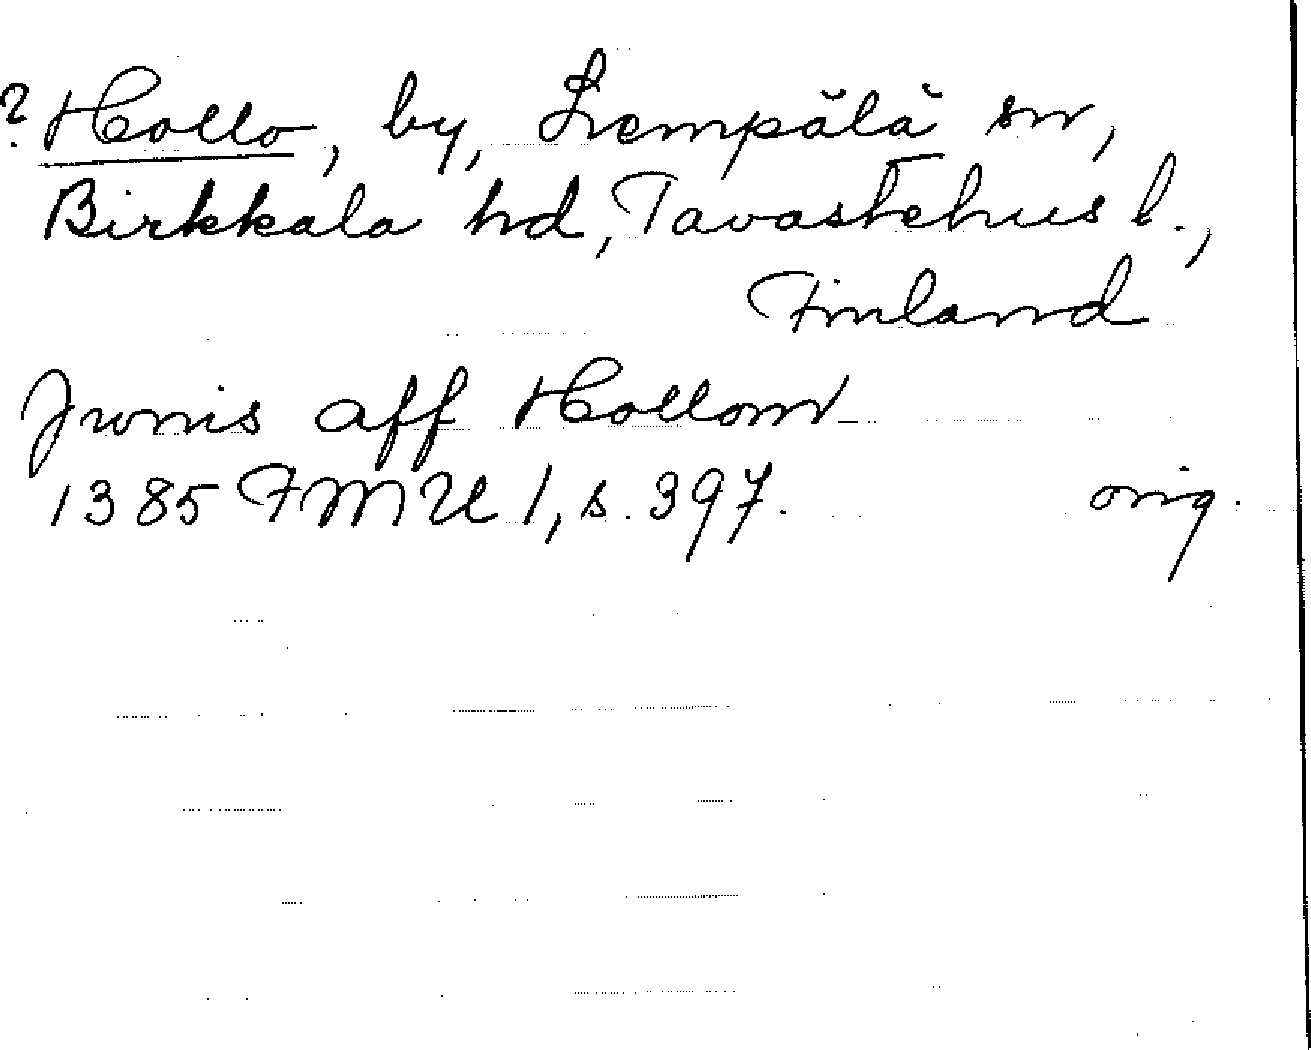 ? Hollo, by, Lempälä sn,
Birkkala hd, Tavastehus l.,
Finland
Jwnis aff Hollom
1385 FMU 1, s. 397. orig.